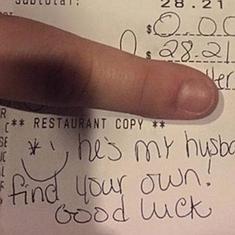 Subtotal: 28.21
$ 0.00
$ 28.21
** RESTAURANT COPY **
he's my husba
find your own!
Good luck